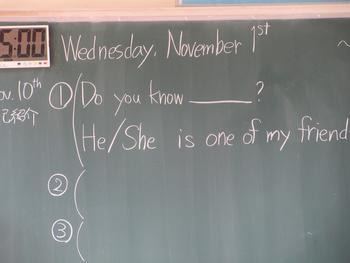 5:00
Wednesday, November 1st
~
ov. 10th
己紹介
① Do you know ______?
He/She is one of my friend
②
③